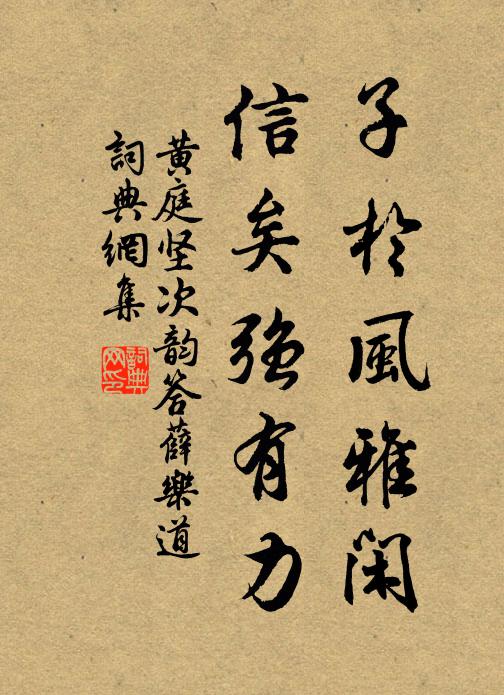 子於風雅閑
信矣強有力
黄庭坚次韵答薛樂道
詞典網集
詞典网印